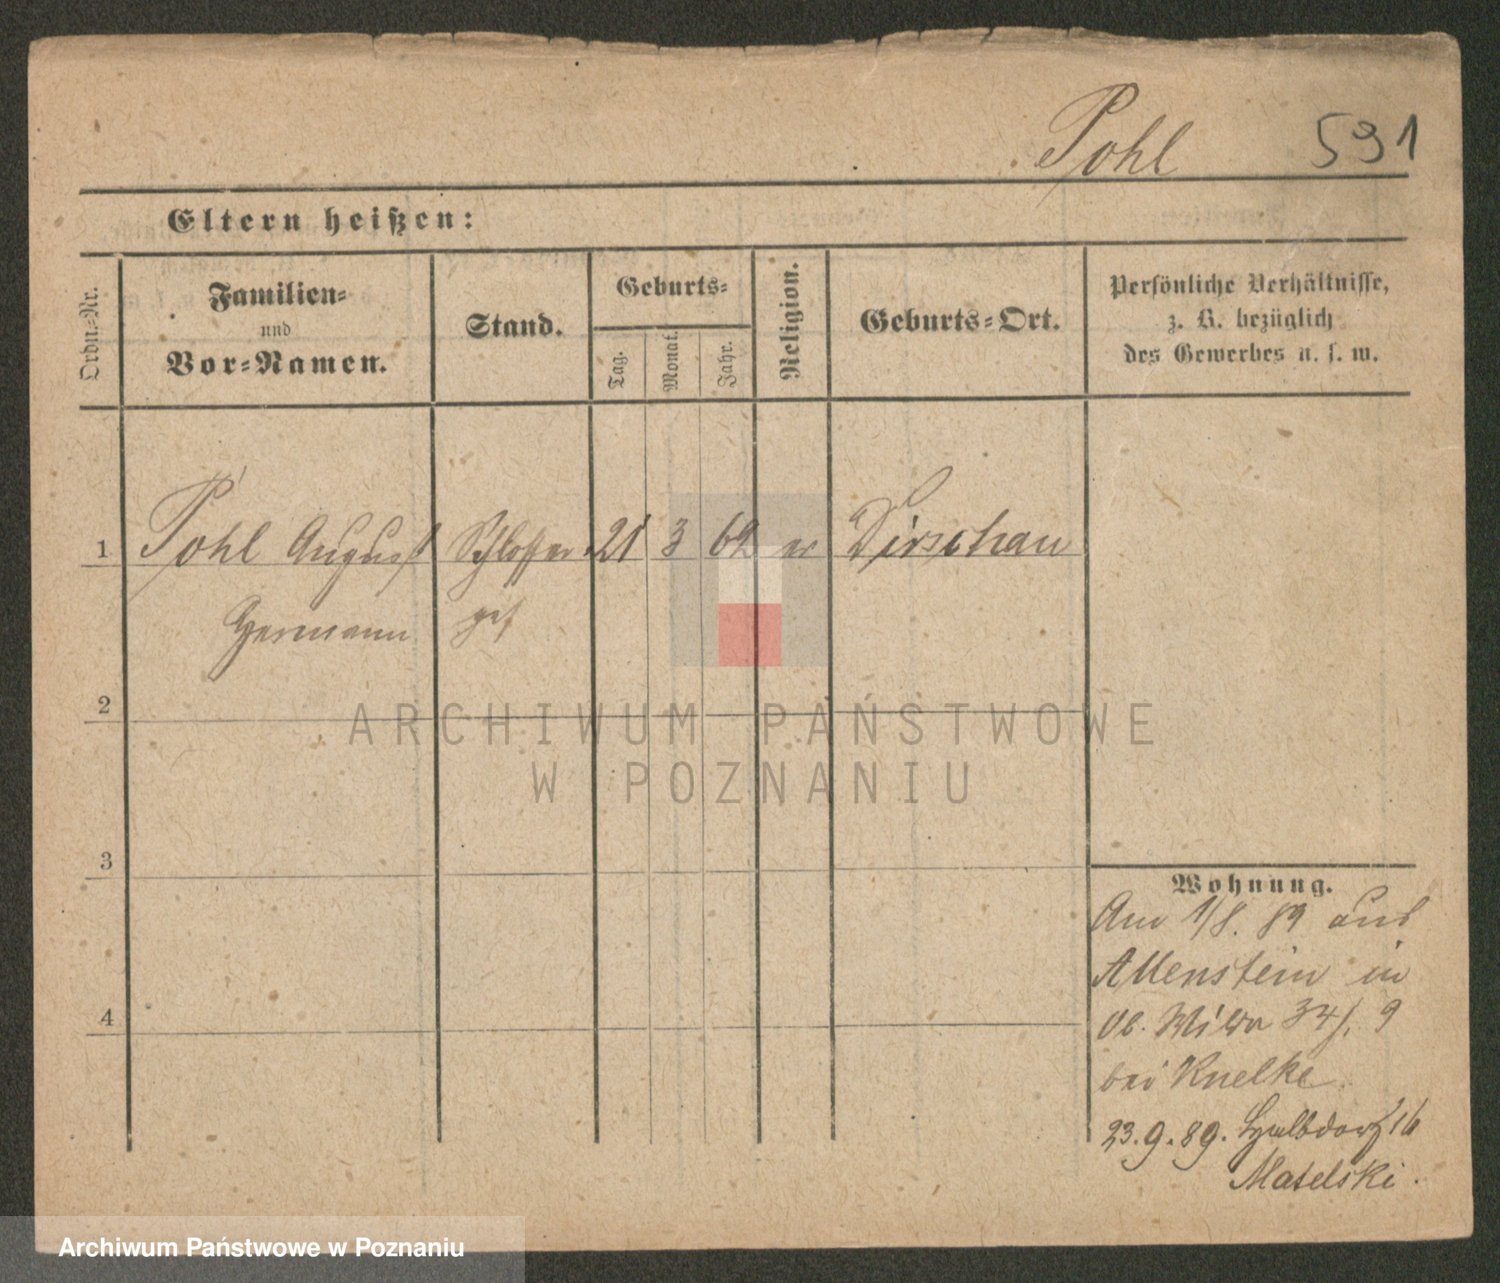 Pohl 591
Eltern heißen:
Ordn.=Nr.
Familien=
und
Vor=Namen.
Stand.
Geburts=
Tag.
Monat.
Jahr.
Religion.
Geburts=Ort.
Persönliche Verhältnisse,
z. B. bezüglich
des Gewerbes u. s. w.
1 Pohl August Schlosser 21 3 69 ev Dirschau
Hermann ges
2
3
4
Wohnung.
Am 1/8. 89 aus
Allenstein in
Ob. Wilda 34/. 9
bei Knelke
23.9.89. Halbdorf 16
Matelski.
ARCHIWUM PAŃSTWOWE
W POZNANIU
Archiwum Państwowe w Poznaniu